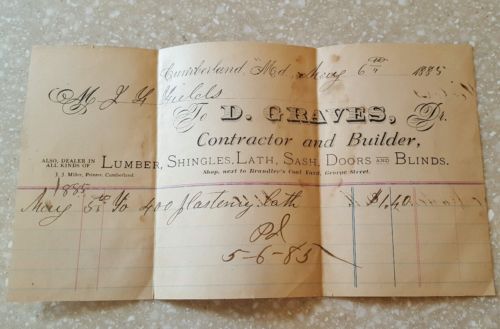 Cumberland, Md., May 6th 1885
M J G Shields
To D. GRAVES, Dr.
Contractor and Builder,
ALSO, DEALER IN ALL KINDS OF LUMBER, SHINGLES, LATH, SASH, DOORS AND BLINDS.
J. J. Miller, Printer, Cumberland. Shop, next to Brandler's Coal Yard, George Street.
1885
May 5th To 400 plastering Lath $1.40
Pd
5-6-85